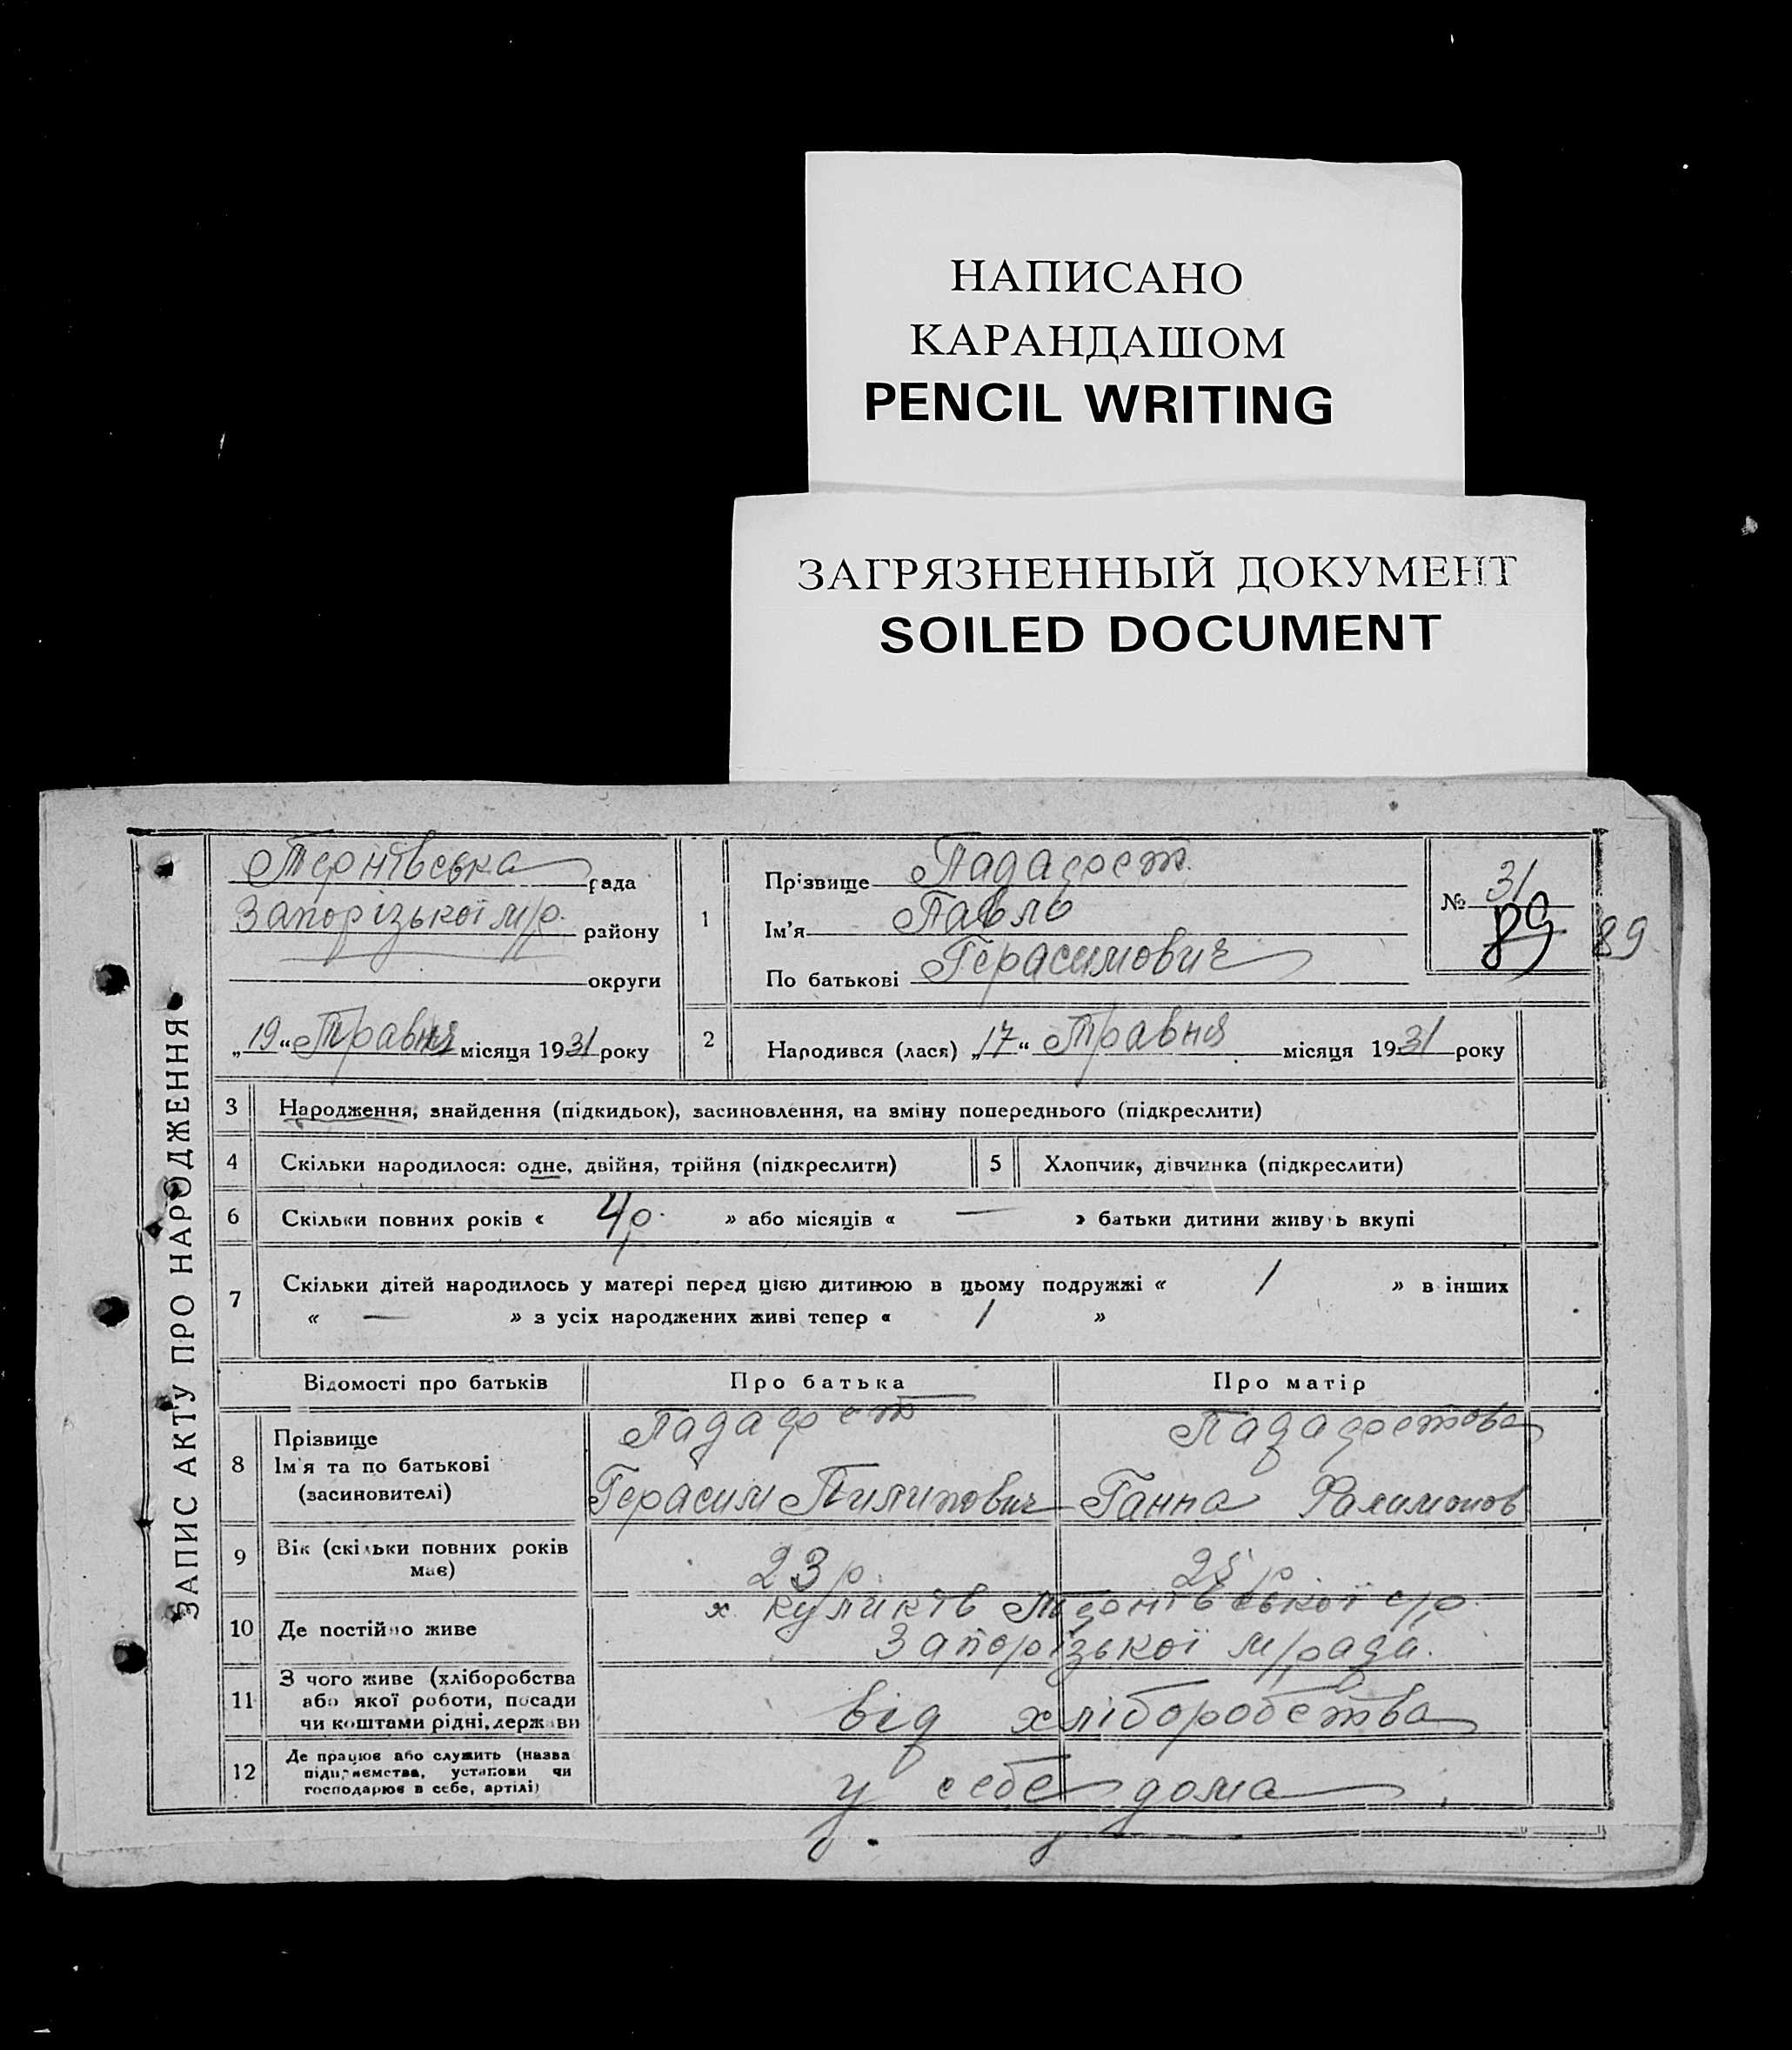 НАПИСАНО
КАРАНДАШОМ
PENCIL WRITING
ЗАГРЯЗНЕННЫЙ ДОКУМЕНТ
SOILED DOCUMENT
ЗАПИС АКТУ ПРО НАРОДЖЕННЯ
Тернівська рада
Запорізької м/р. району
округи
„19“ Травня місяця 1931 року
1
Прізвище Падафет
Ім'я Павло
По батькові Герасимович
№ 31
89
89
2 Народився (лася) „17“ Травня місяця 1931 року
3 Народження, знайдення (підкидьок), засиновлення, на зміну попереднього (підкреслити)
4 Скільки народилося: одне, двійня, трійня (підкреслити) 5 Хлопчик, дівчинка (підкреслити)
6 Скільки повних років « 4 р. » або місяців « — » батьки дитини живуть вкупі
7 Скільки дітей народилось у матері перед цією дитиною в цьому подружжі « 1 » в інших
« — » з усіх народжених живі тепер « 1 »
Відомості про батьків Про батька Про матір
8 Прізвище
Ім'я та по батькові
(засиновителі)
Падафет
Герасим Пилипович
Ганна
9 Вік (скільки повних років має) 23 р. 25 р.
10 Де постійно живе х. Куликів Тернівської с/р.
Запорізької м/ради.
11 З чого живе (хліборобства
або якої роботи, посади
чи коштами рідні, держави
від хліборобства
12 Де працює або служить (назва
підприємства, установи чи
господарює в себе, артілі)
у себе дома